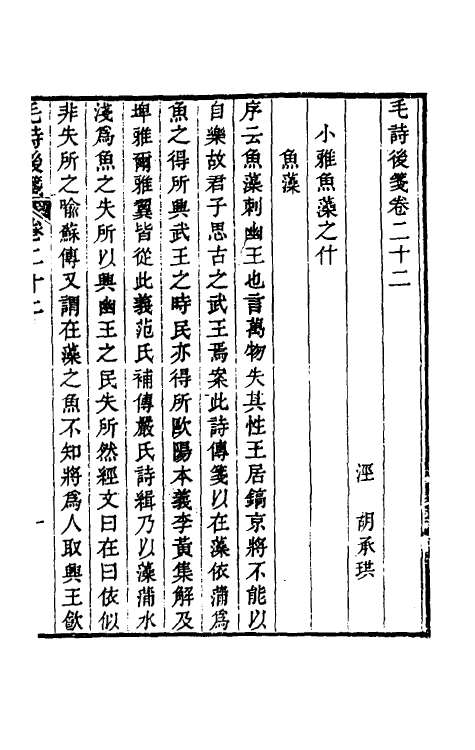 毛詩後箋卷二十二
涇 胡承珙
小雅魚藻之什
魚藻
序云魚藻刺幽王也言萬物失其性王居鎬京將不能以
自樂故君子思古之武王焉案此詩傳箋以在藻依蒲爲
魚之得所興武王之時民亦得所歐陽本義李黃集解及
埤雅爾雅翼皆從此義范氏補傳嚴氏詩緝乃以藻蒲水
淺爲魚之失所以興幽王之民失所然經文曰在曰依似
非失所之喻蘇傳又謂在藻之魚不知將爲人取興王飲
毛詩後箋 卷二十二 一